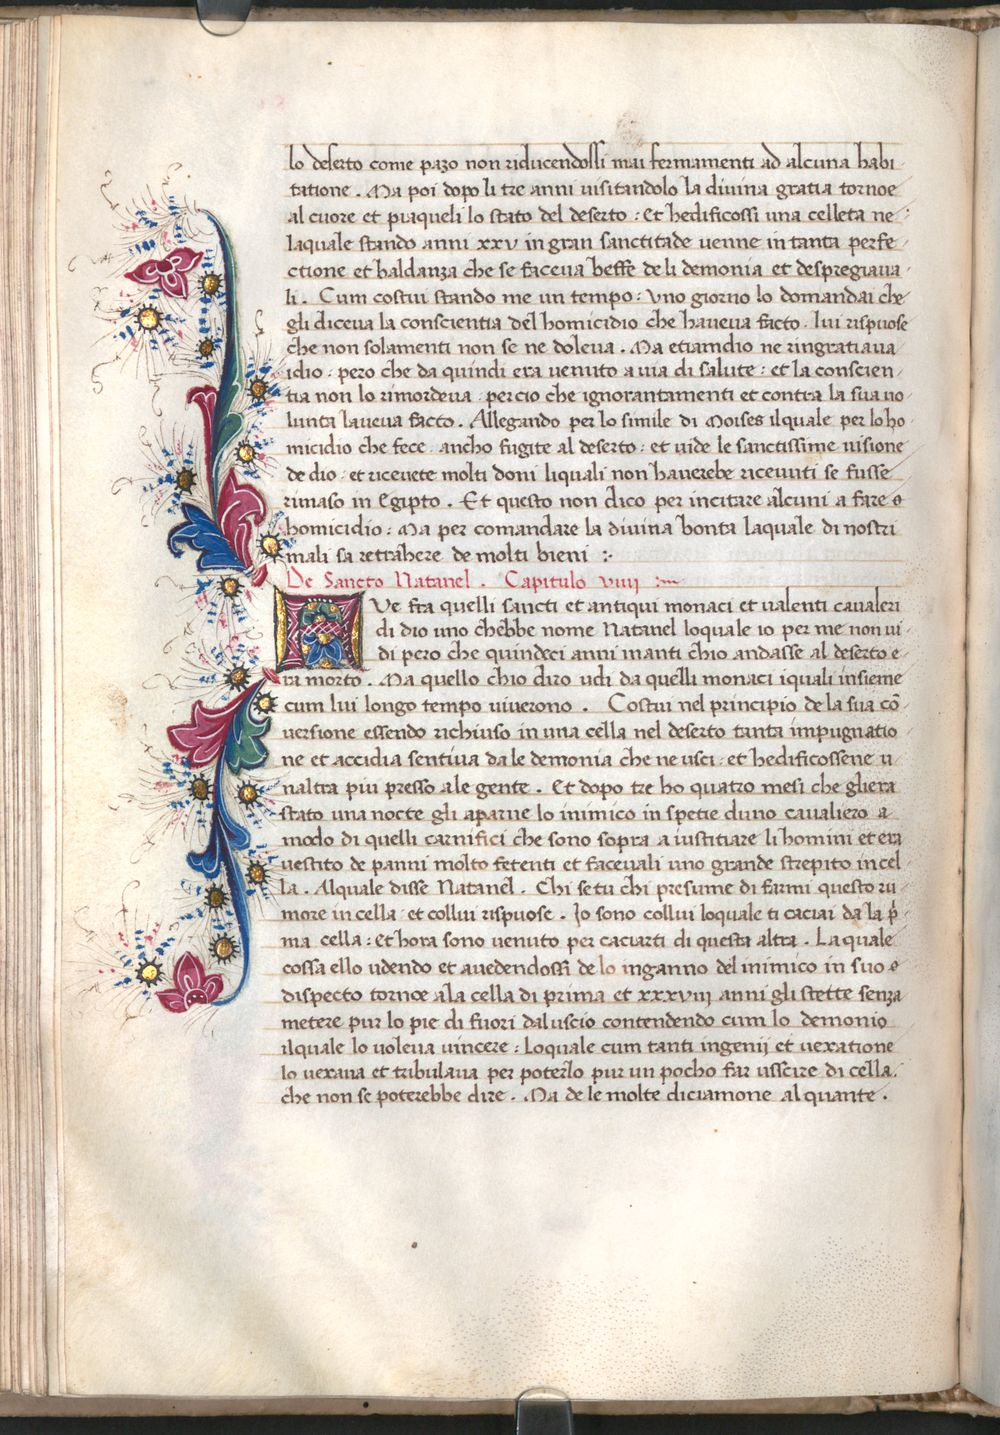 lo deserto come pazo non riducendosi mai fermamenti ad alcuna habi
tatione . Ma poi dopo li tre anni uisitandolo la diuina gratia tornoe
al cuore et piaqueli lo stato del deserto : et hedificossi una celleta ne
laquale stando anni xxv in gran sanctitade uenne in tanta perfe
ctione et baldanza che se faceua beffe deli demonia et despregiaua
li . Cum costui stando me un tempo : uno giorno lo domandai che
gli diceua la conscientia del homicidio che haueua facto . lui rispuose
che non solamenti non se ne doleua . Ma etiamdio ne ringratiaua
idio : pero che da quindi era uenuto a uia di salute : et la conscien
tia non lo rimordeua percio che ignorantamenti et contra la sua uo
lunta laueua facto . Allegando per lo simile di Moises ilquale per lo ho
micidio che fece ancho fugite al deserto : et uide le sanctissime uisione
de dio et riceuete molti doni liquali non hauerebe riceuuti se fusse
rimaso in Egipto . Et questo non dico per incitare alcuni a fare
homicidio : Ma per comandare la diuina bonta laquale di nostri
mali sa retrahere de molti bieni :
De Sancto Natanel . Capitulo viiii :
Ve fra quelli sancti et antiqui monaci et ualenti caualeri
di dio uno chebbe nome Natanel loquale io per me non ui
di pero che quindeci anni inanti chio andasse al deserto e
ra morto . Ma quello chio diro udi da quelli monaci iquali insieme
cum lui longo tempo uiuerono . Costui nel principio de la sua cō
uersione essendo richiuso in una cella nel deserto tanta impugnatio
ne et accidia sentiua da le demonia che ne usci : et hedificossene u
naltra piu presso ale gente . Et dopo tre ho quatro mesi che gliera
stato una nocte gli aparue lo inimico in spetie duno caualiero a
modo di quelli carnifici che sono sopra a iustitiare li homini et era
uestito de panni molto fetenti et faceuali uno grande strepito in cel
la . Alquale disse Natanel . Chi se tu chi presume di farmi questo ru
more in cella et collui rispuose . Io sono collui loquale ti caciai da la p̄
ma cella : et hora sono uenuto per caciarti di questa altra . La quale
cossa ello udendo et auedendossi de lo inganno del inimico in suo
dispecto tornoe a la cella di prima et xxxviii anni gli stette senza
metere pur lo pie di fuori dal uscio contendendo cum lo demonio
ilquale lo uoleua uincere : Loquale cum tanti ingenij et uexatione
lo uexaua et tribulaua per poterlo pur un pocho far usscire di cella .
che non se poterebbe dire . Ma de le molte diciamone al quante .